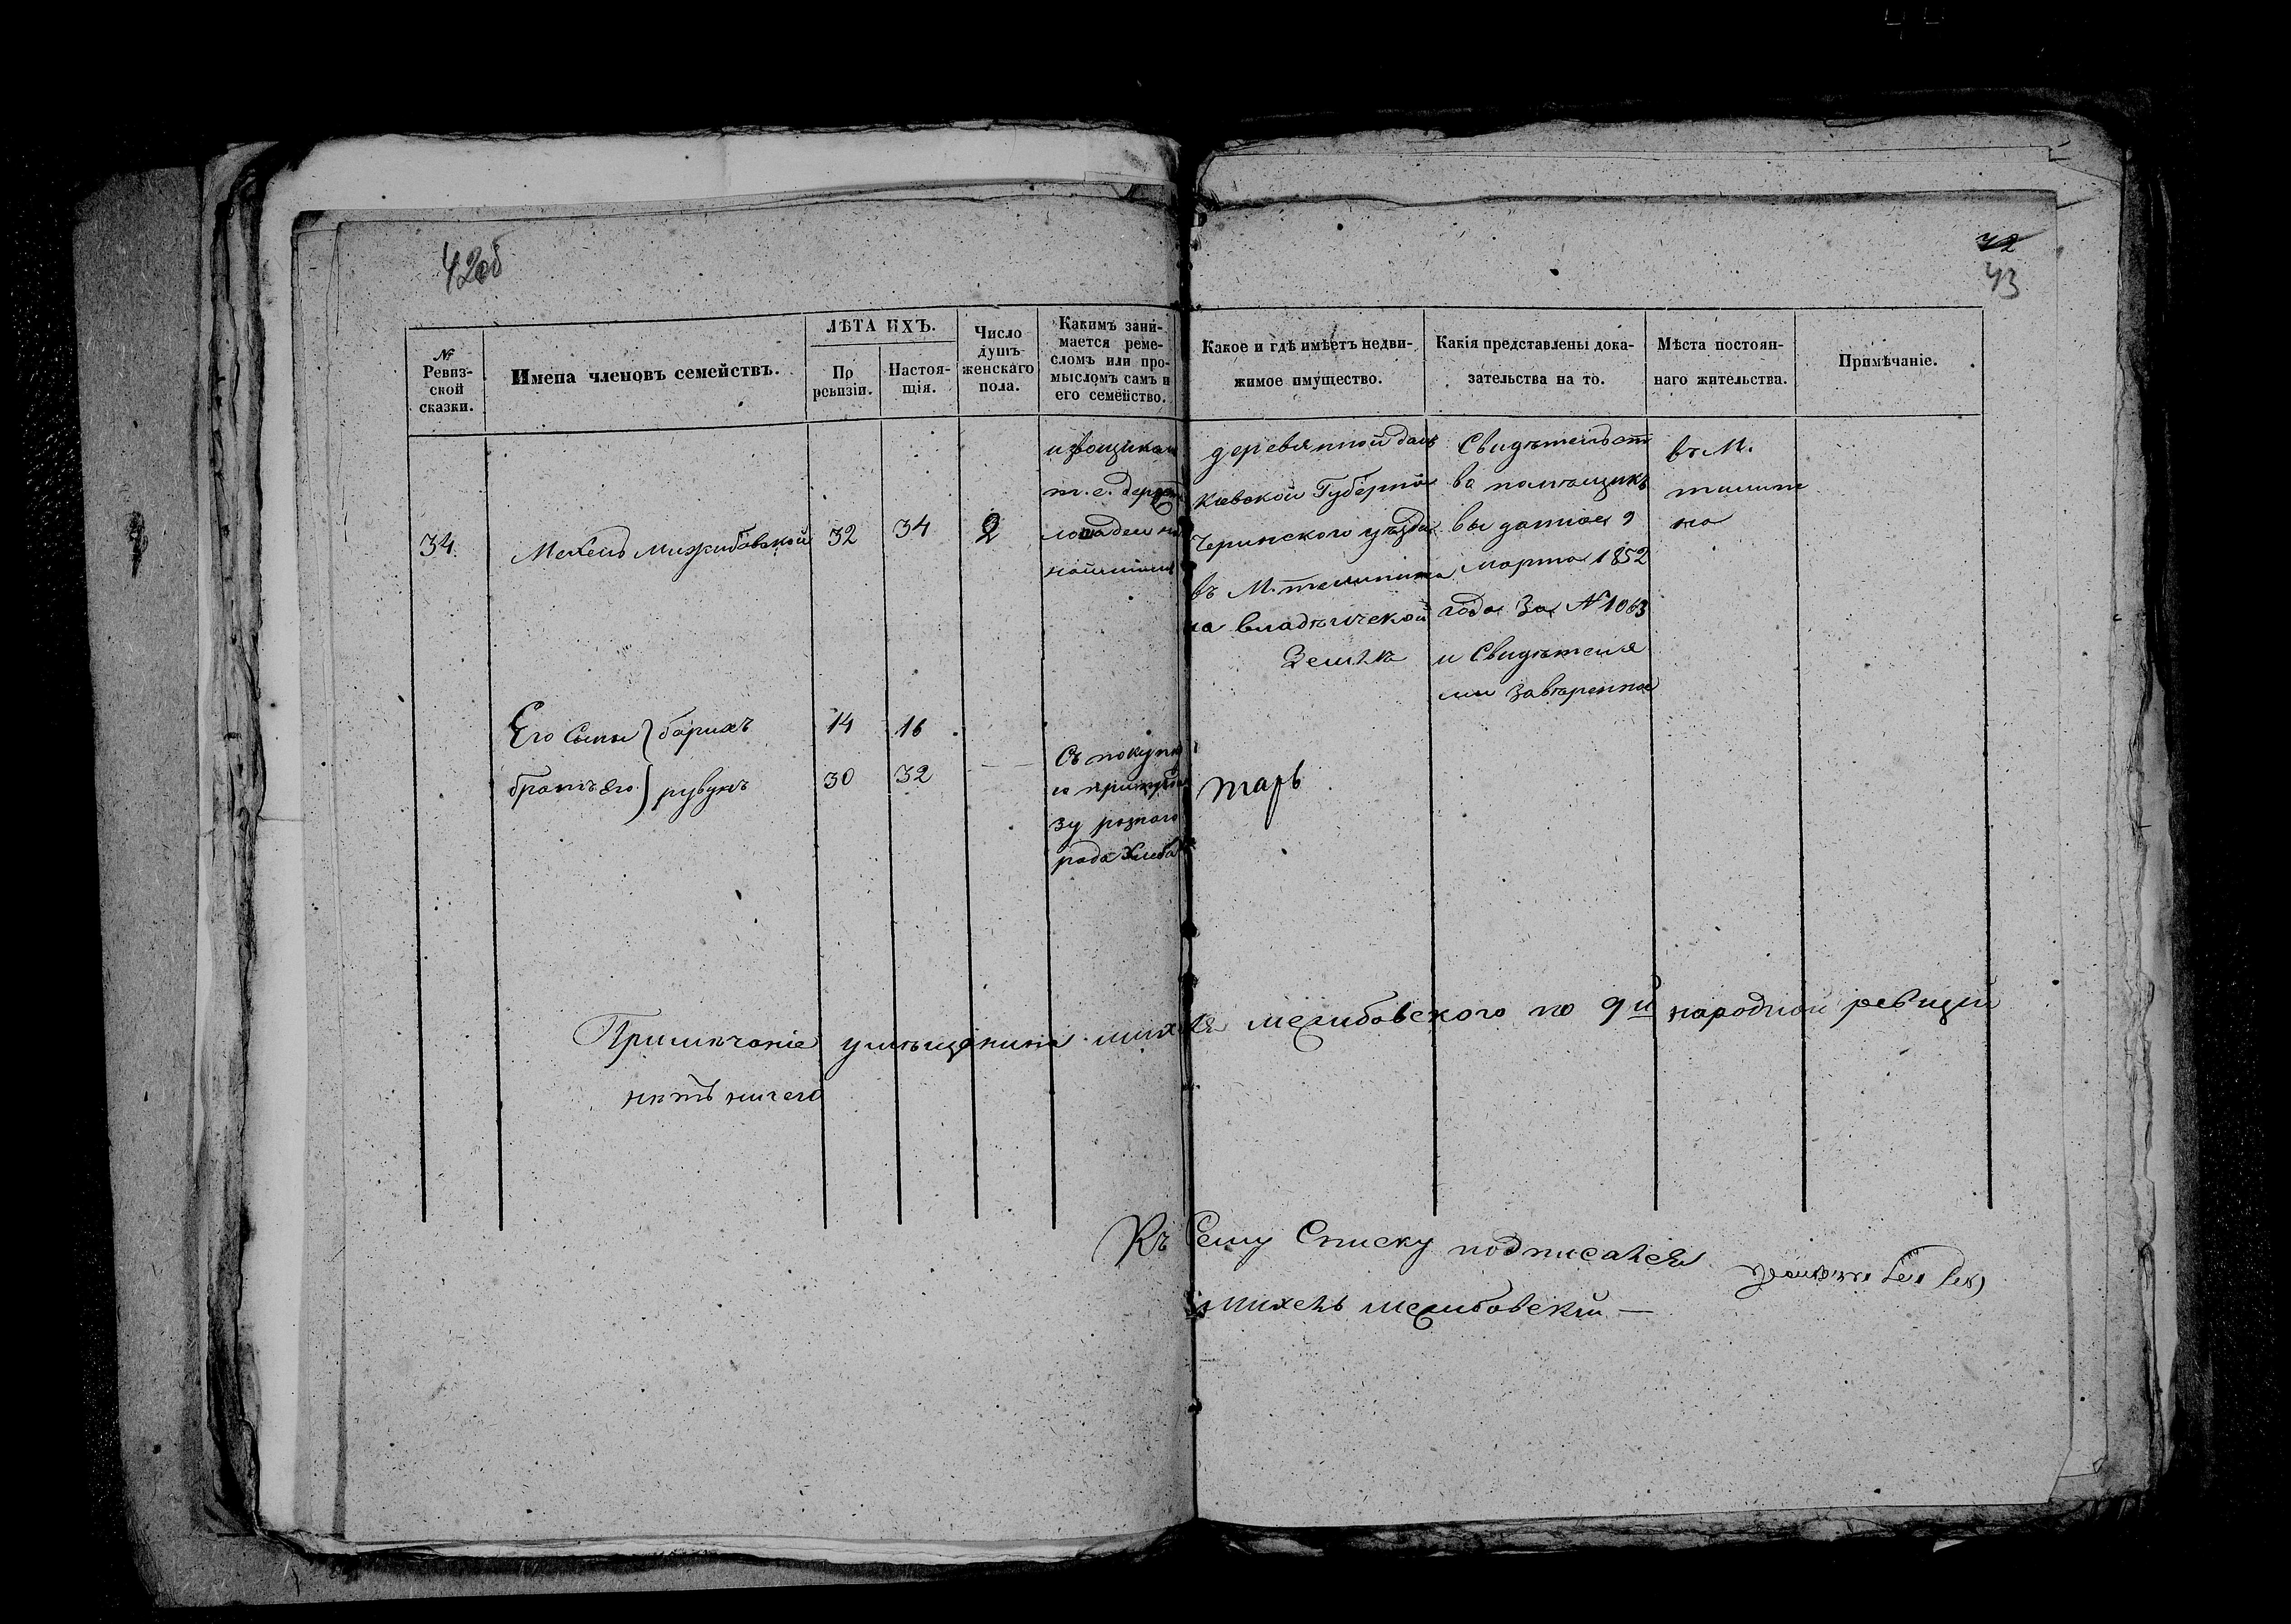 42об
42
43
№ Ревиз-ской сказки.
Имена членовъ семействъ.
ЛѢТА ИХЪ.
По ревизіи.
Настоя-щія.
Число душъ женскаго пола.
Какимъ зани-
мается реме-
сломъ или про-
мысломъ самъ и
его семейство.
Какое и гдѣ имѣетъ недви-
жимое имущество.
Какія представлены дока-
зательства на то.
Мѣста постоян-
наго жительства.
Примѣчаніе.
34.
Мехель Мижибовской
32
34
2
извощикам
т. е. держит
лошадей на
деревянной дом
Киевской Губерніи
Черинского уезда
въ М.
на владѣлческой
Землѣ
Свидѣтельст
во помещик
выданное 9
марта 1852
года За № 1063
и Свидѣтеля
ми заверенное
въ М.
но
Его Сынъ } борихъ
14
16
братъ его } рувинъ
30
32
Съ покупки
рода хлеба
тарь
Примѣчаніе у мѣщанина михеля межибовского по 9й народной ревизіи
нѣтъ ничего
Къ Сему Списку подписался
михель межибовскій —